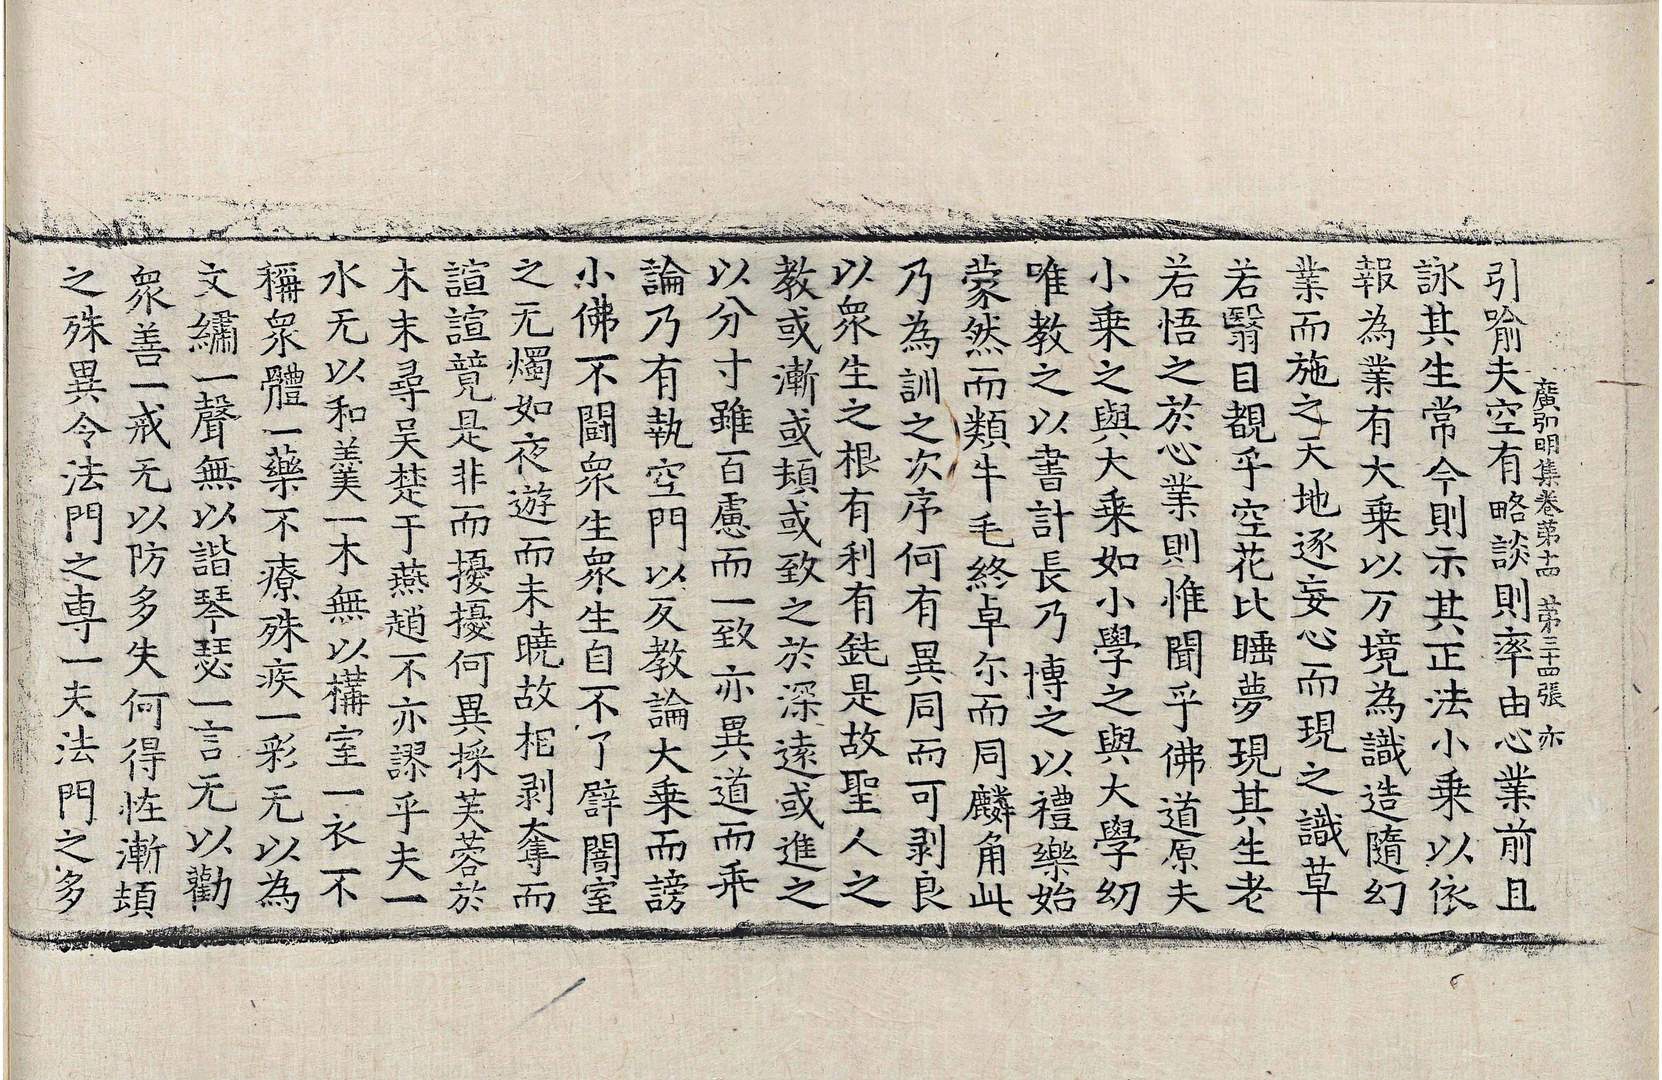 廣弘明集卷第十四 第三十四張 亦
引喻夫空有略談則率由心業前且
詠其生常今則示其正法小乘以依
報為業有大乘以万境為識造隨幻
業而施之天地逐妄心而現之識草
若翳目覩乎空花比睡夢現其生老
若悟之於心業則惟聞乎佛道原夫
小乘之與大乘如小學之與大學幼
唯教之以書計長乃博之以禮樂始
蒙然而類牛毛終卓尔而同麟角此
乃為訓之次序何有異同而可剥良
以眾生之根有利有鈍是故聖人之
教或漸或頓或致之於深遠或進之
以分寸雖百慮而一致亦異道而乖
論乃有執空門以反教論大乘而謗
小佛不闘眾生眾生自不了譬闇室
之无燭如夜遊而未曉故柁剥奪而
諠諠競是非而擾擾何異採芙蓉於
木末尋吴楚于燕趙不亦謬乎夫一
水无以和羹一木無以構室一衣不
稱眾體一藥不療殊疾一彩无以為
文繡一聲無以諧琴瑟一言无以勸
眾善一戒无以防多失何得恠漸頓
之殊異令法門之専一夫法門之多